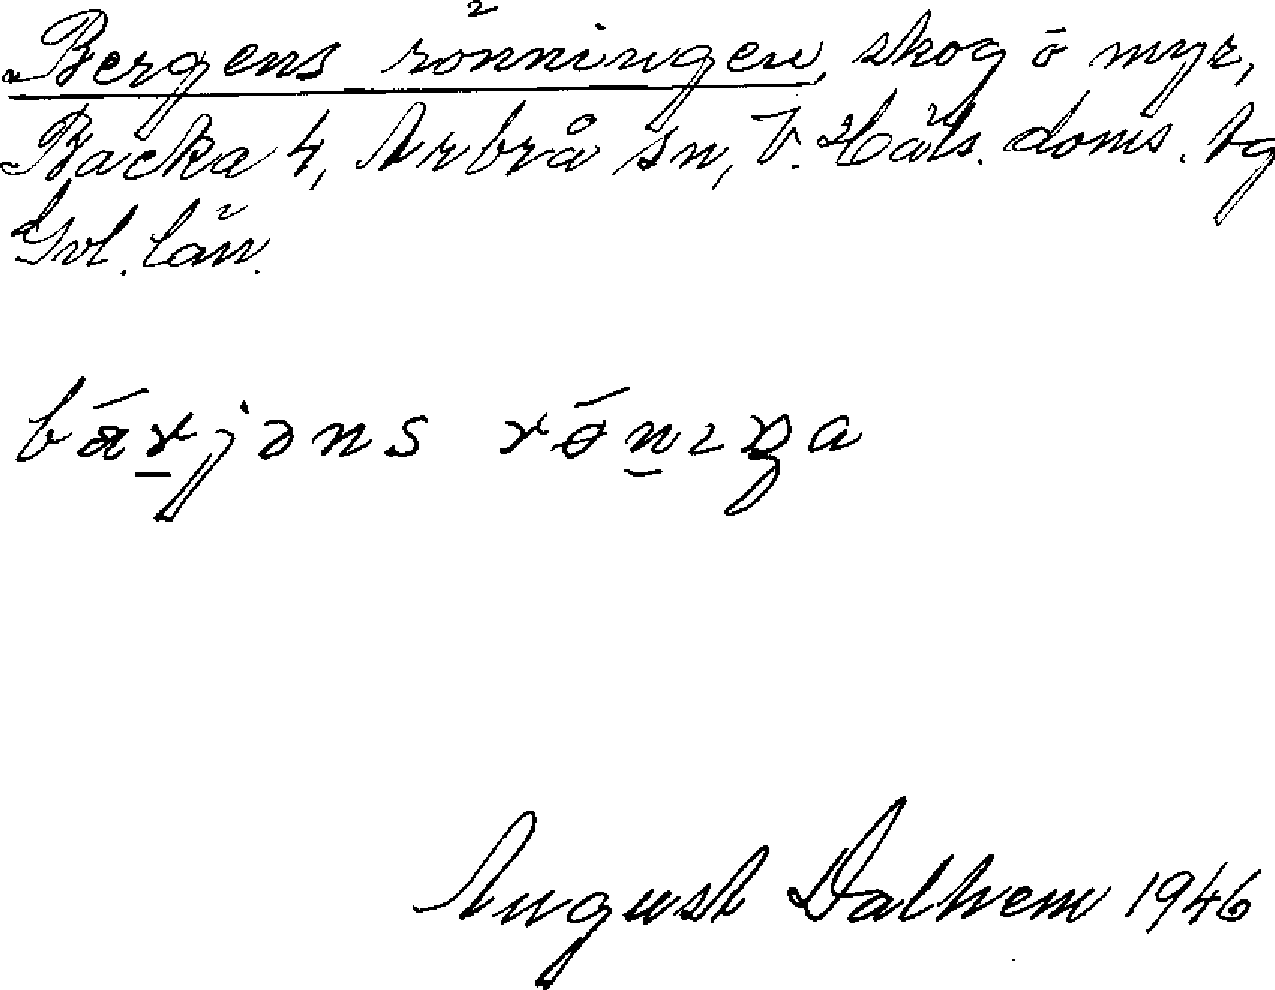 Bergens rönningen, skog o myr,
Backa 4, Arbrå sn, V. Häls. doms. tg
Gvl. län.
bärjəns rönıŋa
August Dalhem 1946